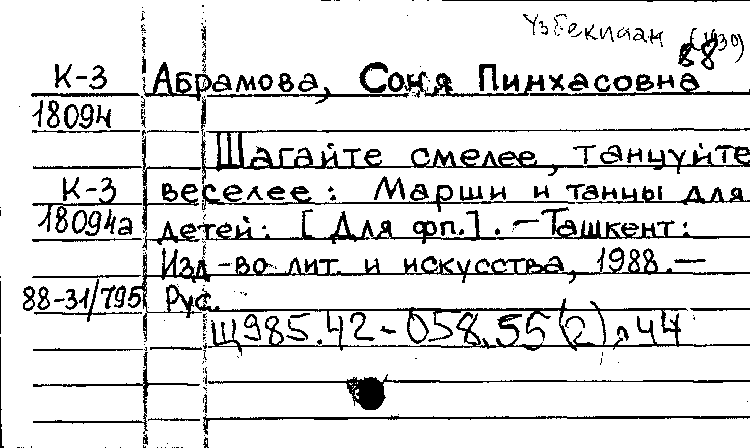 Узбекистан
88 (1430)
К-3 Абрамова, Соня Пинхасовна
18094
Шагайте смелее, танцуйте
К-3 веселее: Марши и танцы для
18094а детей: [Для фп.]. — Ташкент:
Изд-во лит. и искусства, 1988. —
88-31/795 Рус.
Щ985.42-058.55(2)я44